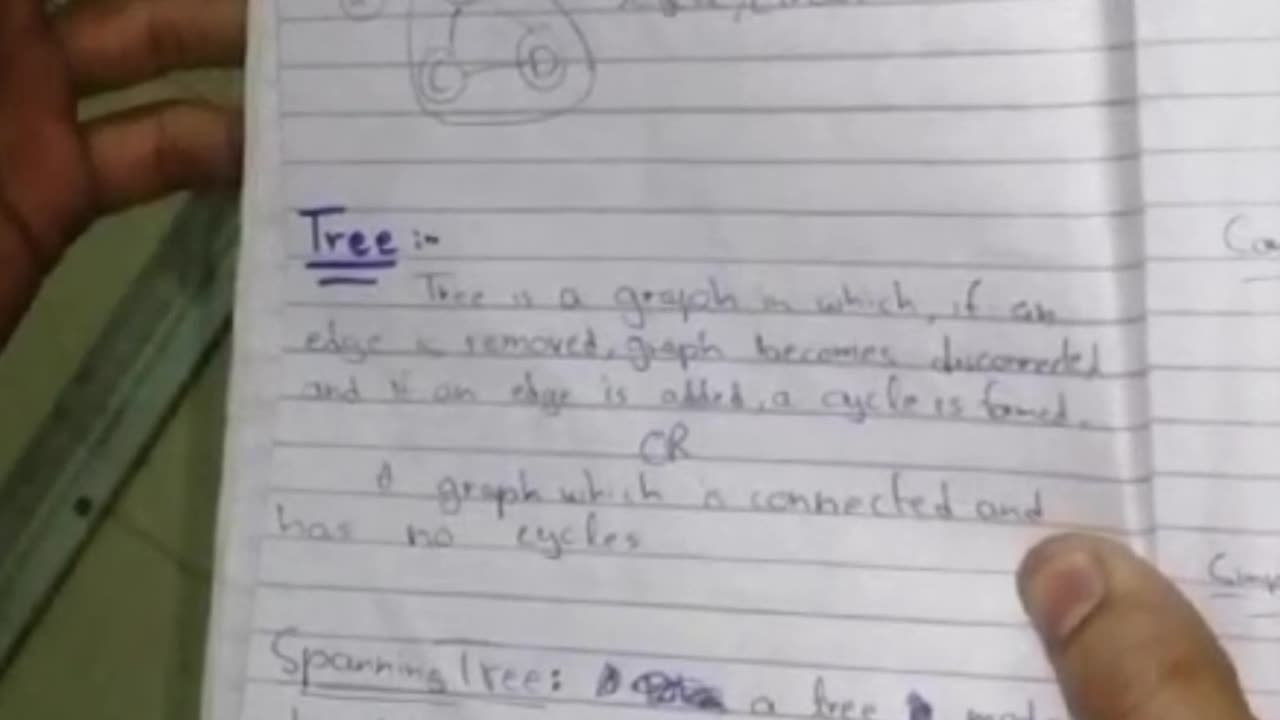 C D
Tree :-
Tree is a graph in which, if an
edge is removed, graph becomes disconnected
and if an edge is added, a cycle is formed.
OR
A graph which is connected and
has no cycles
Spanning Tree: a tree